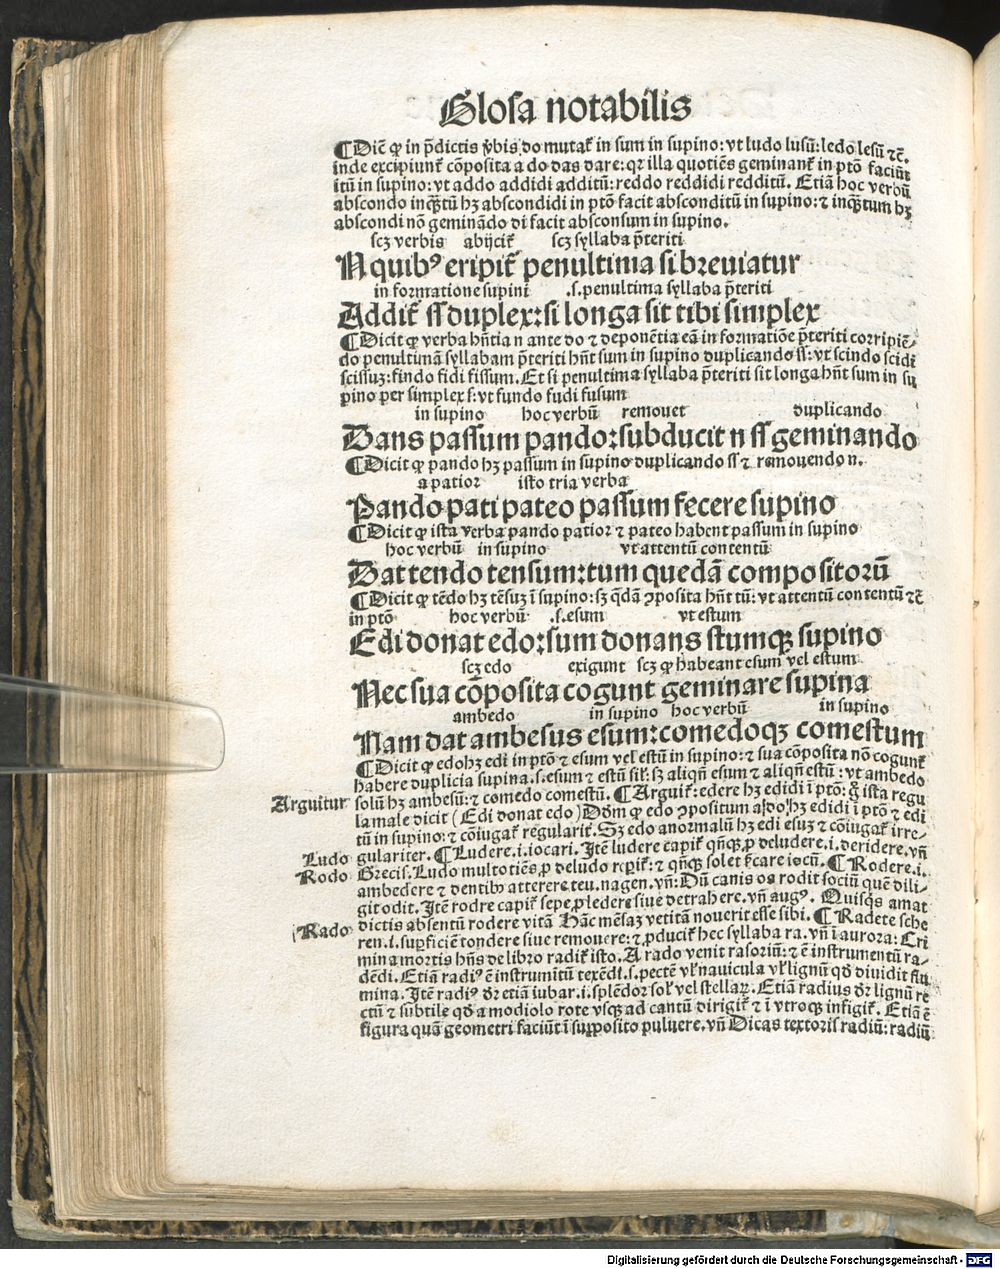 Glosa notabilis
¶Dicit̄ qꝫ in p̄dictis v̓bis do mutat̄ in sum in supino: vt ludo lusū: ledo lesū ⁊c̄.
inde excipiunt̄ cōposita a do das dare: qꝛ illa quotiēs geminant̄ in ptō faciūt
itū in supino: vt addo addidi additū: reddo reddidi redditū. Etiā hoc verbū
abscondo inqꝫtū hꝫ abscondidi in ptō facit absconditū in supino: ⁊ inqꝫtum hꝫ
abscondi nō geminādo di facit absconsum in supino.
scꝫ verbis abijcit̄ scꝫ syllaba p̄teriti
N quibꝰ eripit̄ penultima si breuiatur
in formatione supini .s. penultima syllaba p̄teriti
Addit̄ ss duplex: si longa sit tibi simplex
¶Dicit qꝫ verba hn̄tia n ante do ⁊ deponētia eā in formatiōe p̄teriti corripiē-
do penultimā syllabam p̄teriti hn̄t sum in supino duplicando ss: vt scindo scidi
scissuꝫ: findo fidi fissum. Et si penultima syllaba p̄teriti sit longa hn̄t sum in su
pino per simplex s: vt fundo fudi fusum
in supino hoc verbū remouet duplicando
Dans passum pando: subducit n ss geminando
¶Dicit qꝫ pando hꝫ passum in supino duplicando ss ⁊ remouendo n.
a patior isto tria verba
Pando pati pateo passum fecere supino
¶Dicit qꝫ ista verba pando patior ⁊ pateo habent passum in supino
hoc verbū in supino vt attentū contentū
Dat tendo tensum: tum quedā compositorū
¶Dicit qꝫ tēdo hꝫ tēsuꝫ ī supino: sꝫ q̄dā ꝯposita hn̄t tū: vt attentū contentū ⁊c̄
in ptō hoc verbū .s. esum vt estum
Edi donat edo: sum donans stumqꝫ supino
scꝫ edo exigunt scꝫ qꝫ habeant esum vel estum
Nec sua cōposita cogunt geminare supina
ambedo in supino hoc verbū in supino
Nam dat ambesus esum: comedoqꝫ comestum
¶Dicit qꝫ edo hꝫ edi in ptō ⁊ esum vel estū in supino: ⁊ sua cōposita nō cogunt̄
habere duplicia supina .s. esum ⁊ estū sil̄: sꝫ aliqn̄ esum ⁊ aliqn̄ estū: vt ambedo
Arguitur solū hꝫ ambesū: ⁊ comedo comestū. ¶Arguit̄: edere hꝫ edidi ī ptō: g̊ ista regu
la male dicit (Edi donat edo) Dōm qꝫ edo ꝯpositum a do hꝫ edidi ī ptō ⁊ edi
tū in supino: ⁊ cōiugat̄ regularit̄. Sꝫ edo anormalū hꝫ edi esuꝫ ⁊ cōiugat̄ irre-
Ludo gulariter. ¶Ludere .i. iocari. Itē ludere capit̄ qn̄qꝫ p deludere .i. deridere. vn̄
Rodo Grecis. Ludo multotiēs p deludo recipit̄: ⁊ qn̄qꝫ solet fecare iocū. ¶Rodere .i.
ambedere ⁊ dentibꝰ atterere. teu. nagen. vn̄: Dū canis os rodit sociū quē dili-
git odit. Itē rodre capit̄ sepe p ledere siue detrahere. vn̄ augꝰ. Quisqꝫ amat
dictis absentū rodere vitā Hāc mēsaꝫ vetitā nouerit esse sibi. ¶Radete sche
Rado ren .i. suꝑficiē tondere siue remouere: ⁊ ꝓducit̄ hec syllaba ra. vn̄ ī aurora: Cri
mina mortis hn̄s de libro radit̄ isto. A rado venit rasoriū: ⁊ ē instrumentū ra-
dēdi. Etiā radiꝰ ē instrumītū texēdi .s. pectē vl̓ nauicula vl̓ lignū qd̓ diuidit flu
mina. Itē radiꝰ dr̄ etiā iubar .i. splēdor sol̓ vel stellaꝝ. Etiā radius dr̄ lignū re
ctū ⁊ subtile qd̓ a modiolo rote vsqꝫ ad cantū dirigit̄ ⁊ ī vtroqꝫ infigit̄. Etiā ē
figura quā geometri faciūt ī suꝓposito puluere. vn̄ Dicas textoris radiū: radiū
Digitalisierung gefördert durch die Deutsche Forschungsgemeinschaft - DFG